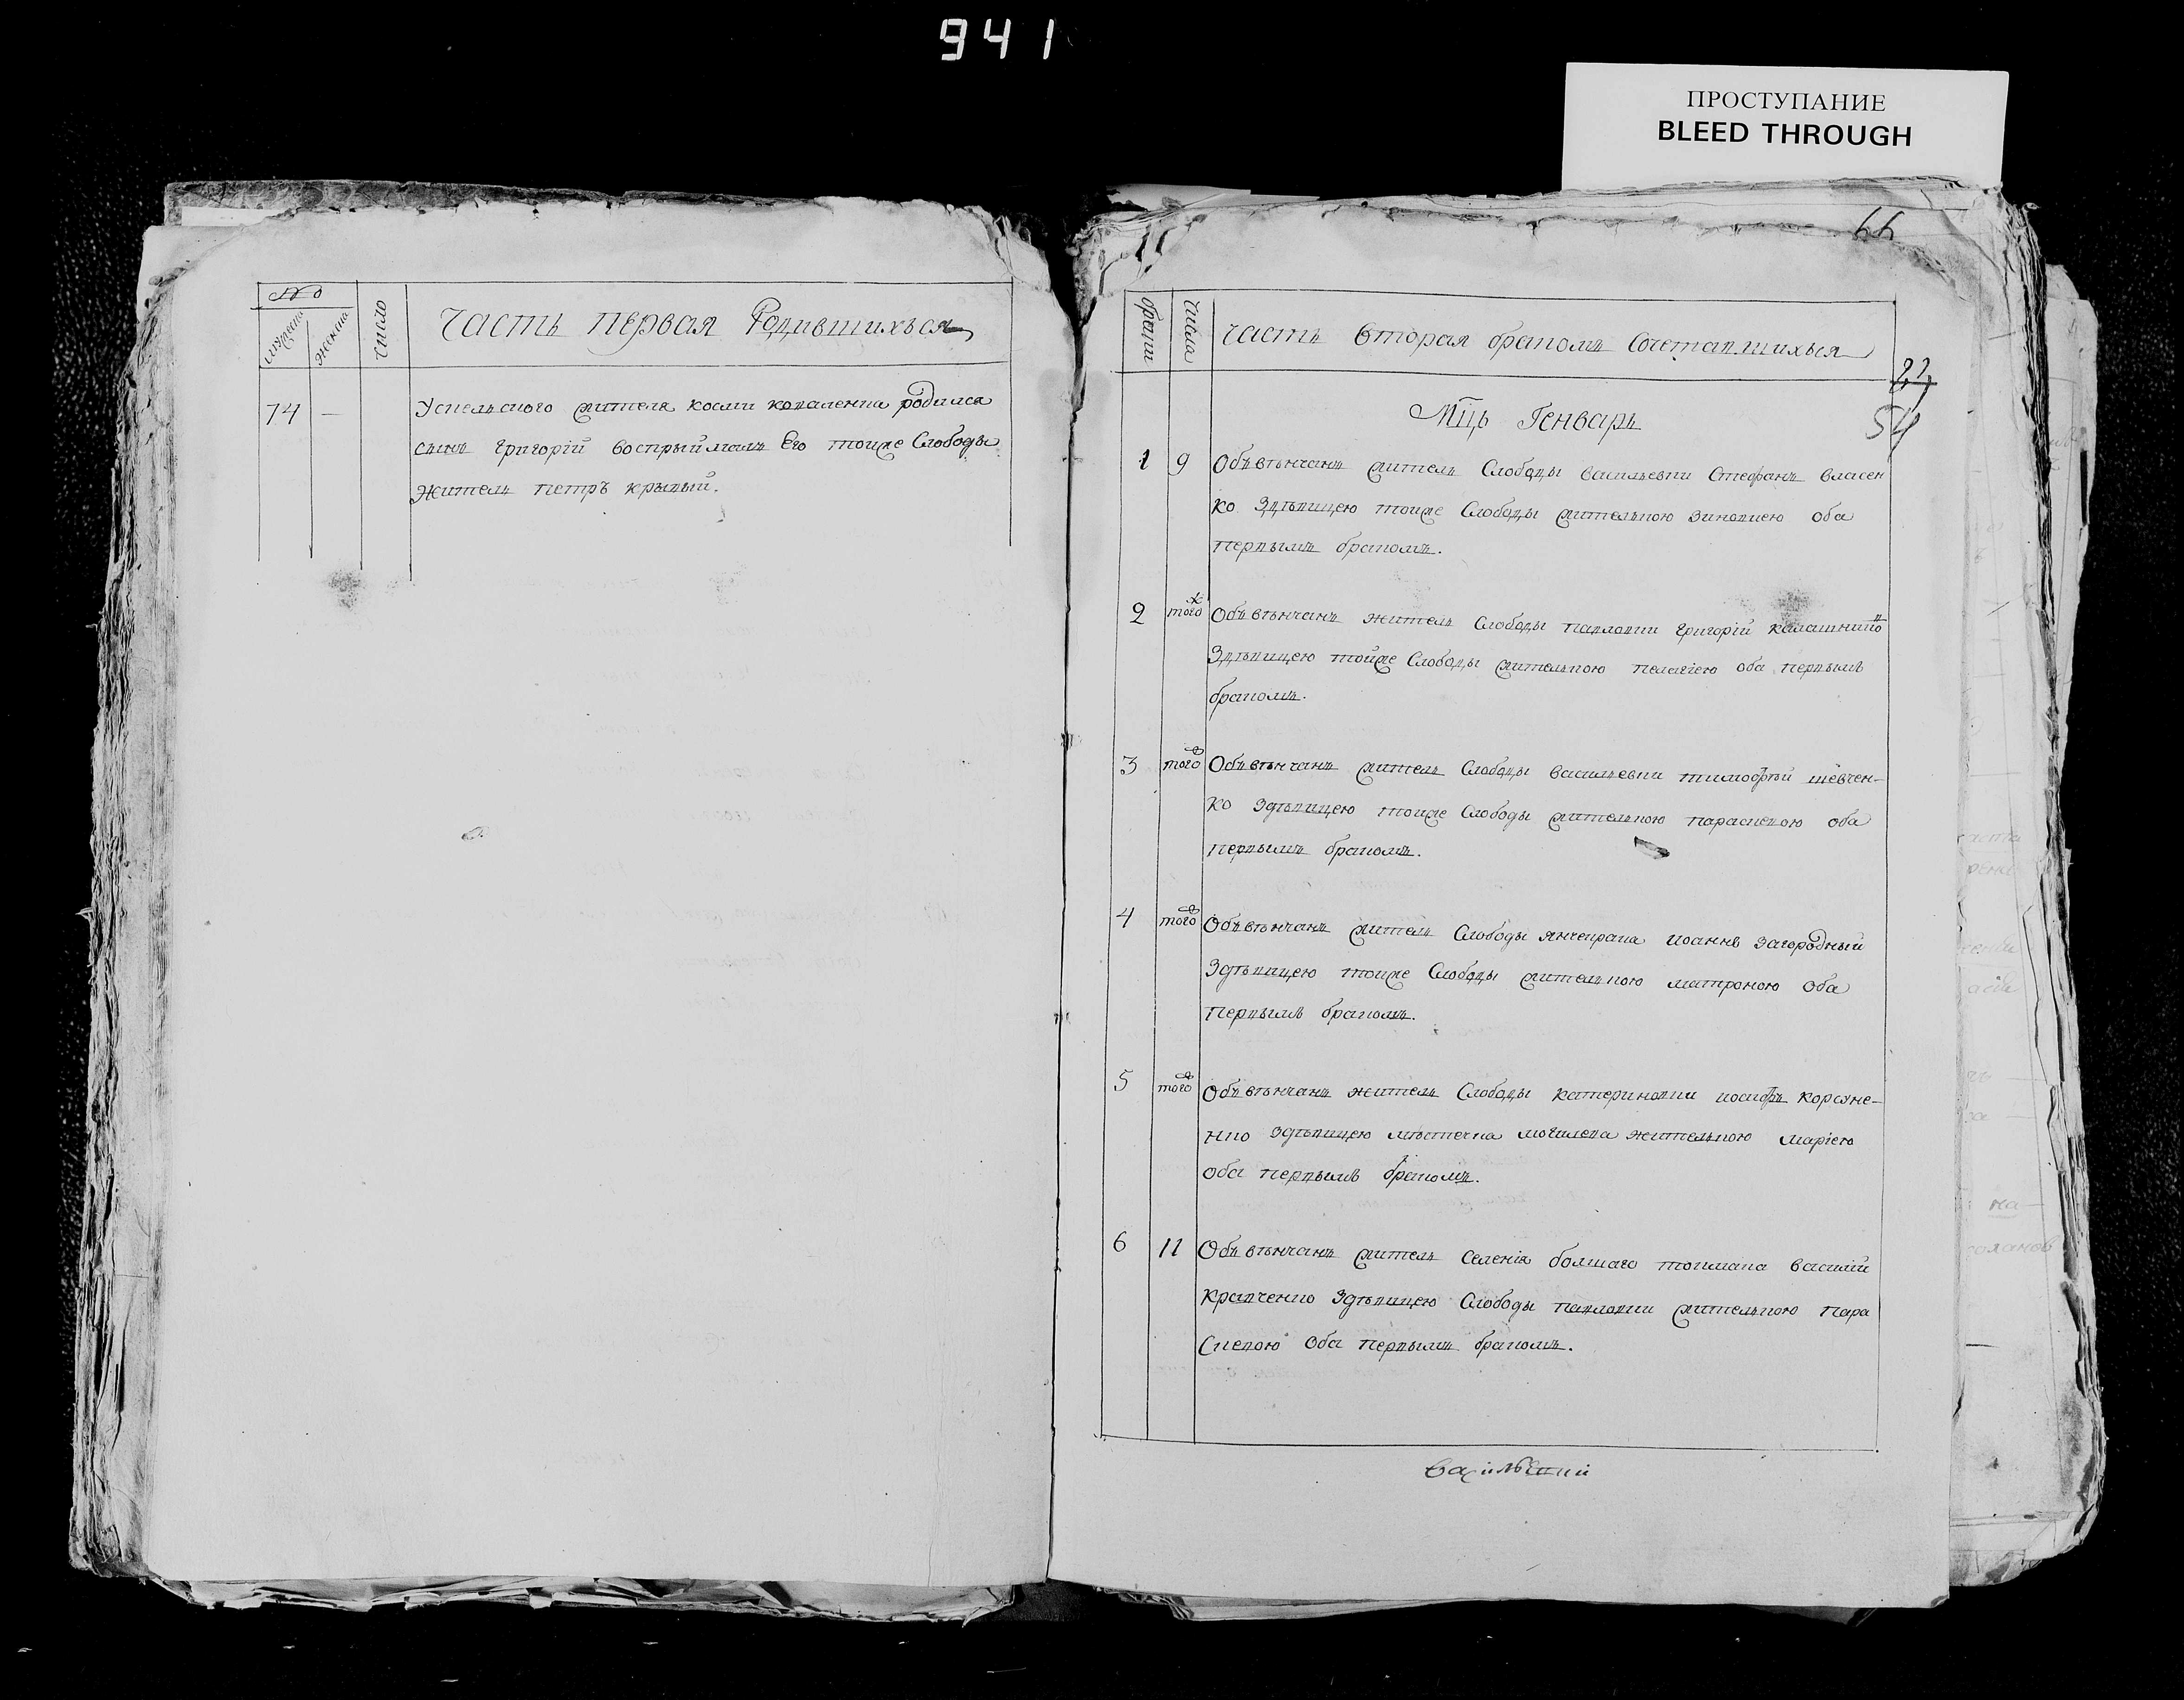 941
ПРОСТУПАНИЕ
BLEED THROUGH
66
№
мужеска
женска
число
Часть первая Родившихъся
74 —
Успенского жителя косми коваленка родился
сынъ григорій воспрыймалъ Его тоиже Слободы
Житель петръ крывый.
браки
числа
Часть вторая бракомъ Сочетавшихъся
22
54
Мцъ Генварь
1 9 Объвѣнчанъ житель Слободы васильевки Стефанъ власен
ко Здѣвицею тоиже Слободы жителькою зиновиею оба
первымъ бракомъ.
2 тогож Объвѣнчанъ житель Слободы павловки григорій калашники
Здѣвицею тойже Слободы жителькою пелагіею оба первымъ
бракомъ.
3 тогож Объвѣнчанъ житель Слободы васильевки тимофѣй шевчен-
ко Здѣвицею тоиже Слободы жителькою параскевою оба
первымъ бракомъ.
4 тогож Объвѣнчанъ житель Слободы янчекрака иоаннъ загородный
Здѣвицею тоиже Слободы жителькою матроною оба
первымъ бракомъ.
5 тогож Объвѣнчанъ житель Слободы катериновки иосифъ коржне-
нко здѣвицею мѣстечка могилева жителькою маріею
оба первымъ бракомъ.
6 11 Объвѣнчанъ житель селенія болшаго токмака василий
кравченко Здѣвицею Слободы павловки жителькою пара
Скевою Оба первымъ бракомъ.